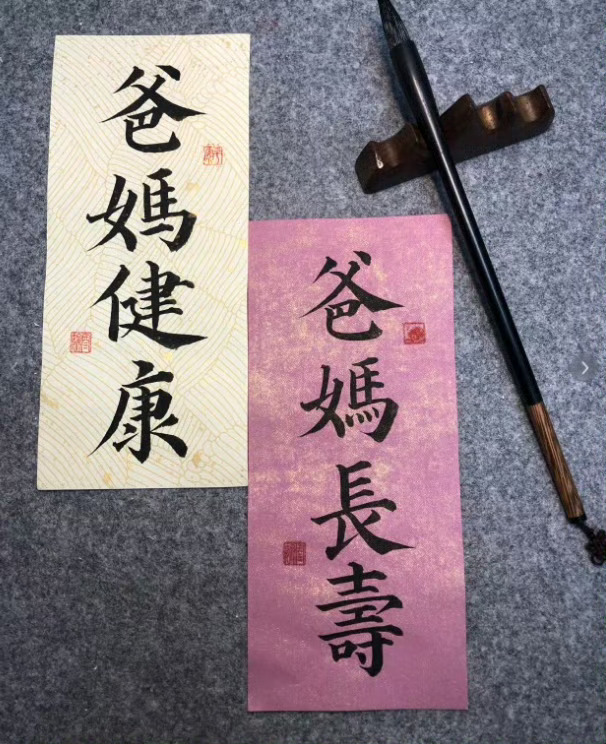 爸媽健康
爸媽長壽